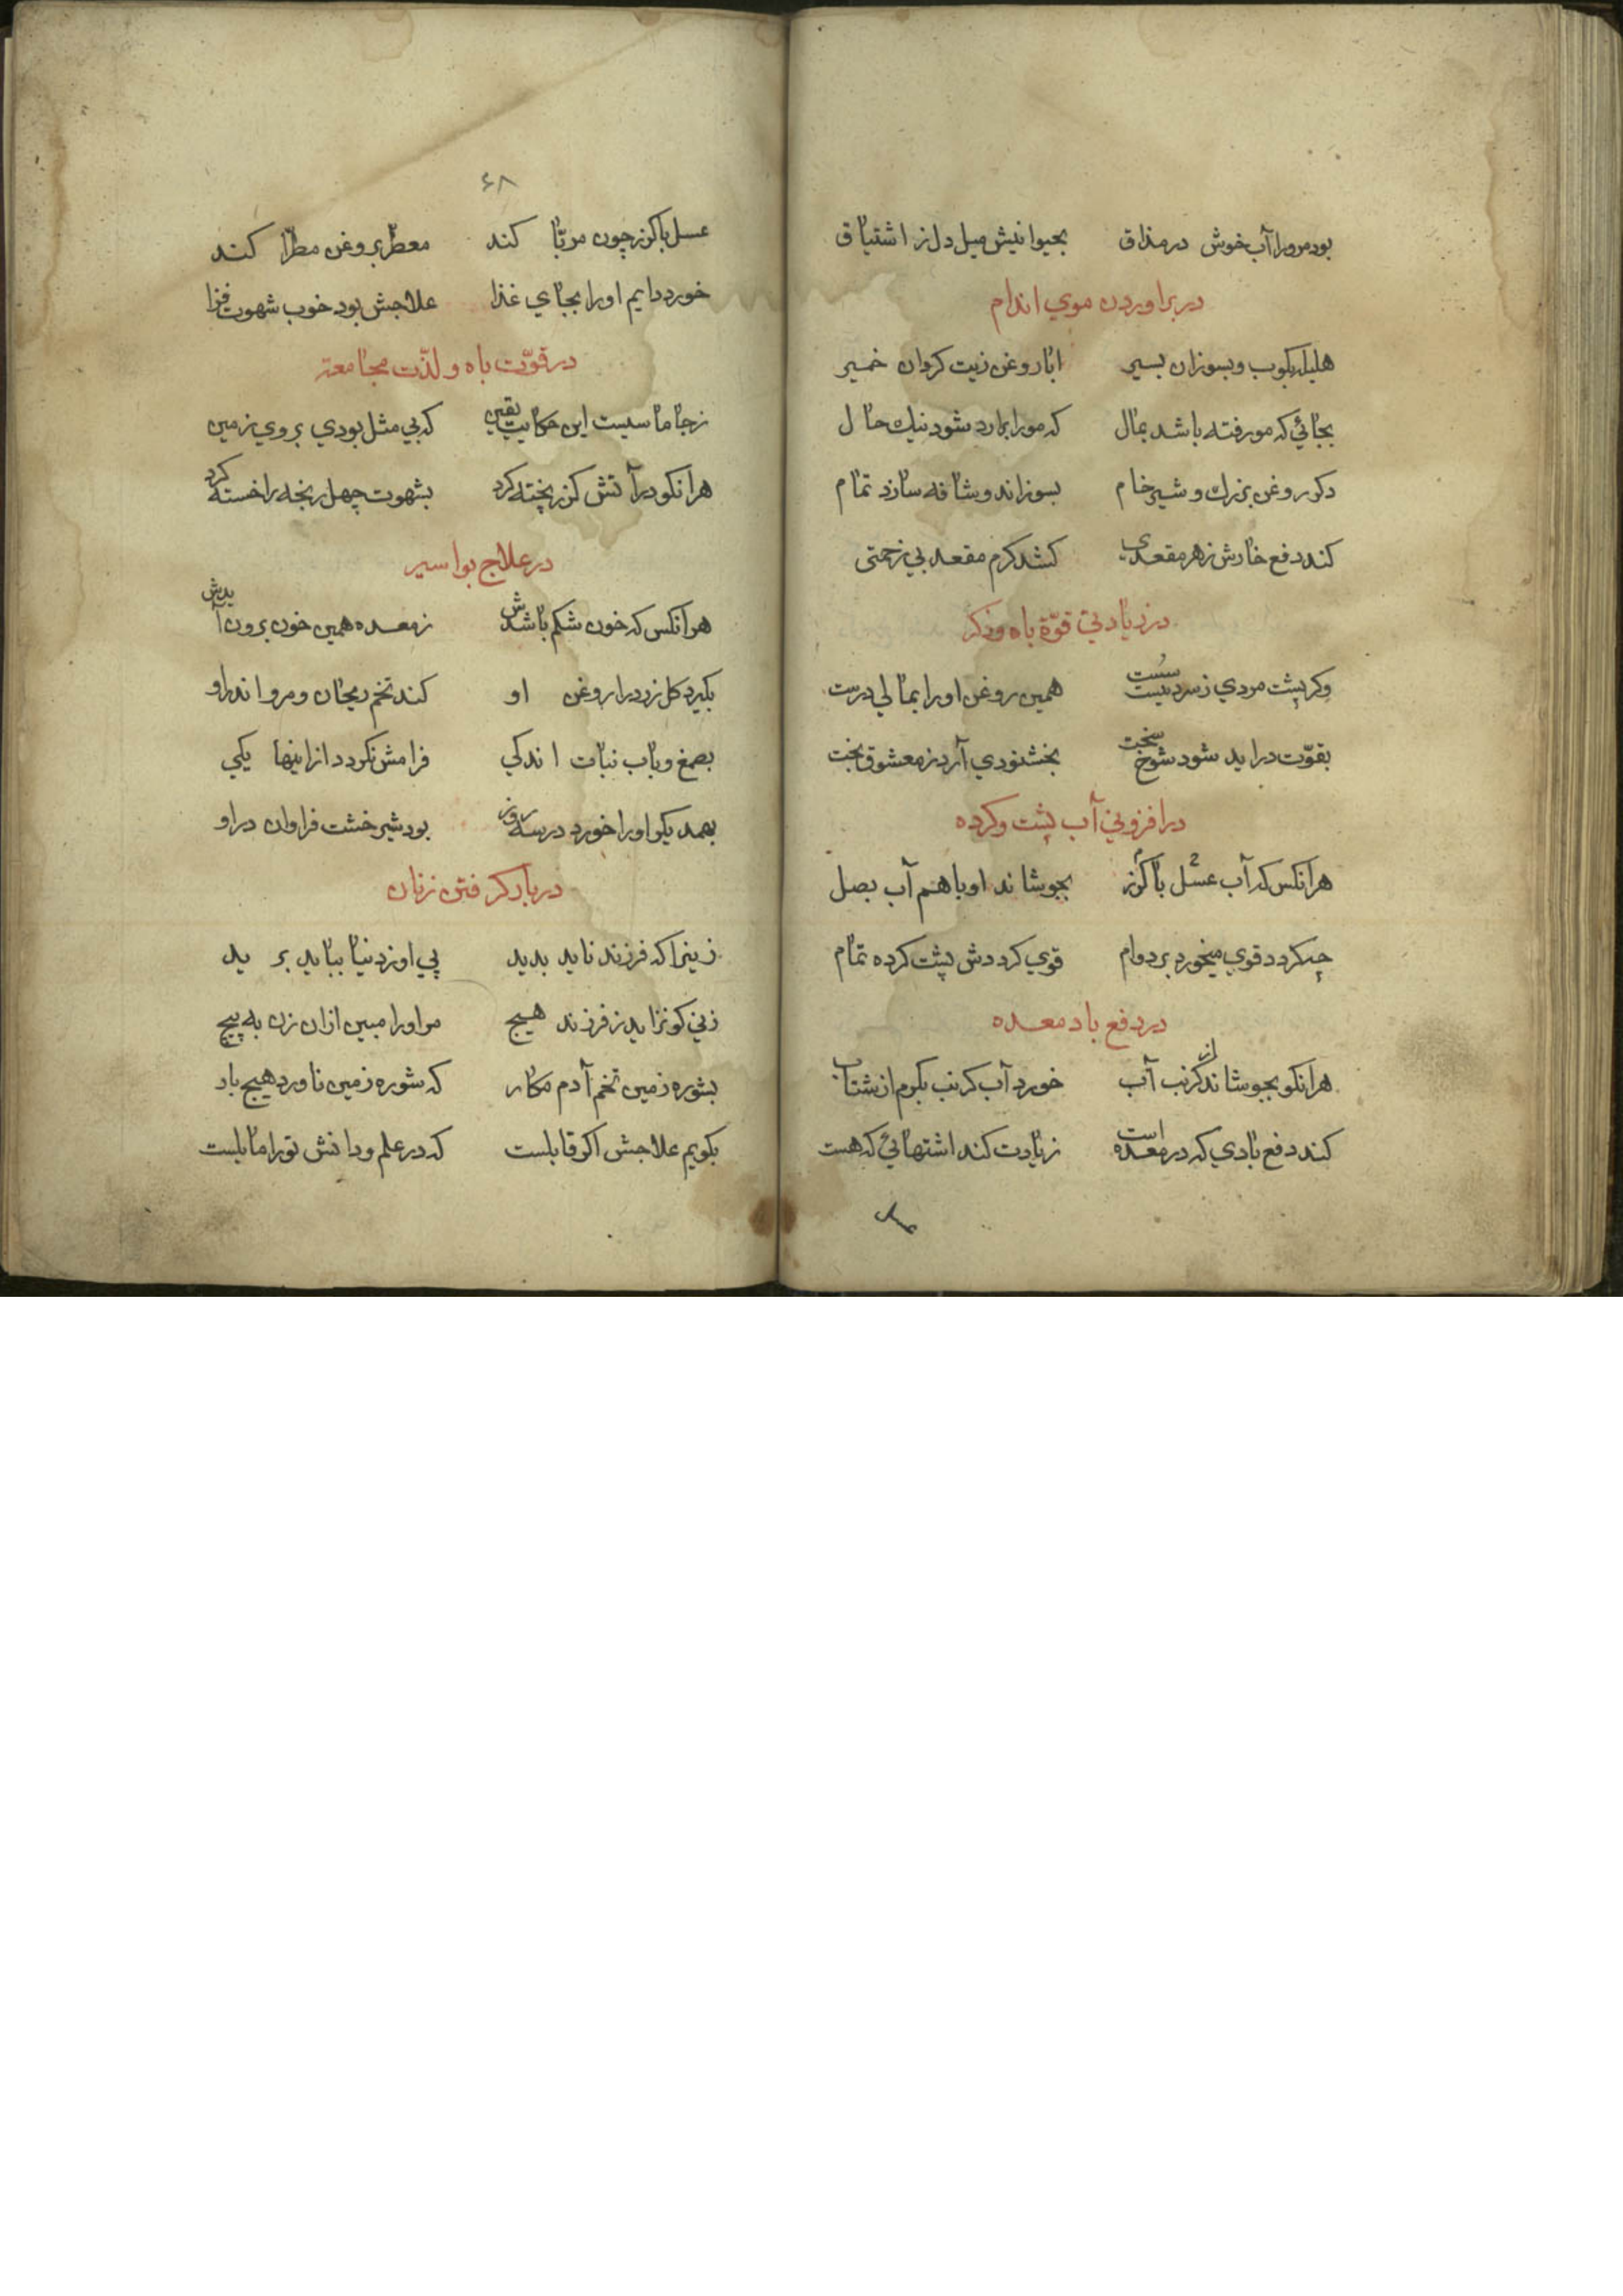 بود مرورا آب خوش در مذاق بحیوانیش میل دل ز اشتیاق
در براوردن موي اندام
هلیله بکوب و بسوزان بسیر ابا روغن زیت کردان خمیر
بجائي که مو رفته باشد بمال که مو را برارد شود نیك حال
دکر روغن بزرك و شیر خام بسوزاند و شافه سازد تمام
کند دفع خارش ز هر مقعدی کشد کرم مقعد بی زحمتی
در زیادتي قوّة باه و ذکر
وکر پشت مردي ز سردیست سست همین روغن او را بمالي درست
بقوّت دراید شود شوخ سخت بخشنودي آرد ز معشوق بخت
در افزوني آب پشت و کرده
هرانکس که آب عسل با کزر بجوشاند او با هم آب بصل
چه کردد قوي میخورد بر دوام قوي کرددش پشت کرده تمام
در دفع باد معده
هرانکو بجوشاند کرنب از آب خورد آب کرنب بکرم از شتاب
کند دفع بادي که در معده است زیادت کند اشتهائي که هست
۶۸
عسل با کزر چون مربّا کند معطر بروغن مطرّا کند
خورد دایم او را بجاي غذا علاجش بود خوب شهوت فزا
در قوّت باه و لذّت مجامعة
ز جاماسیست این حکایت یقین که بي مثل بودي بروي زمین
هرانکو در آتش کزر پخته کرد بشهوت چهل رنجه را خسته کرد
در علاج بواسیر
هرانکس که خون شکم باشدش ز معده همین خون برون آیدش
بکیرد کل زرد را روغن او کند تخم ریحان و مرو اندر او
بصمغ و باب نبات اندکي فرامش نکردد از اینها یکي
بهمدیکر او را خورد در سه روز بود شیر خشت فراوان در او
در بار کرفتن زنان
ز نیزا که فرزند ناید بدید پي او ز دنیا بباید برید
زني کو نزاید ز فرزند هیچ مر او را مبین از ان زن به پیچ
بشوره زمین تخم آدم مکار که شوره زمین ناورد هیچ بار
بکویم علاجش اکر قابلست که در علم و دانش تو را مایلست